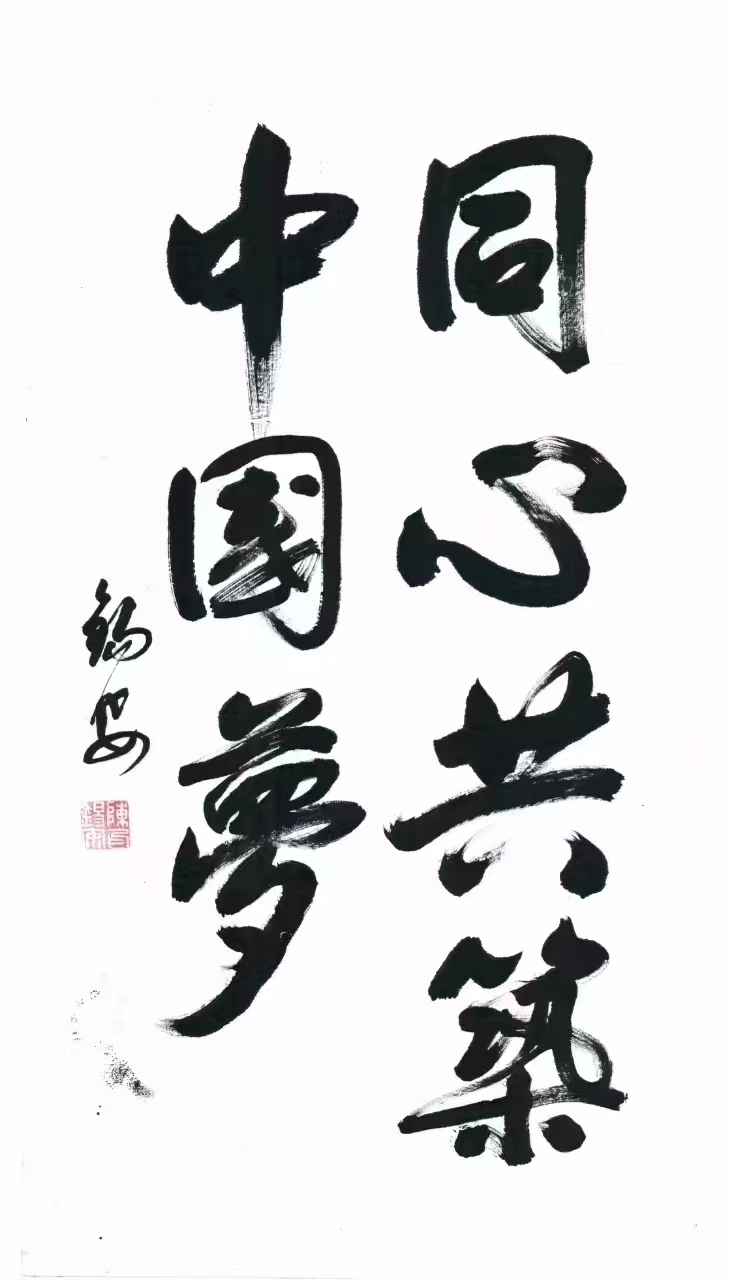 同心共築
中國夢
錫安